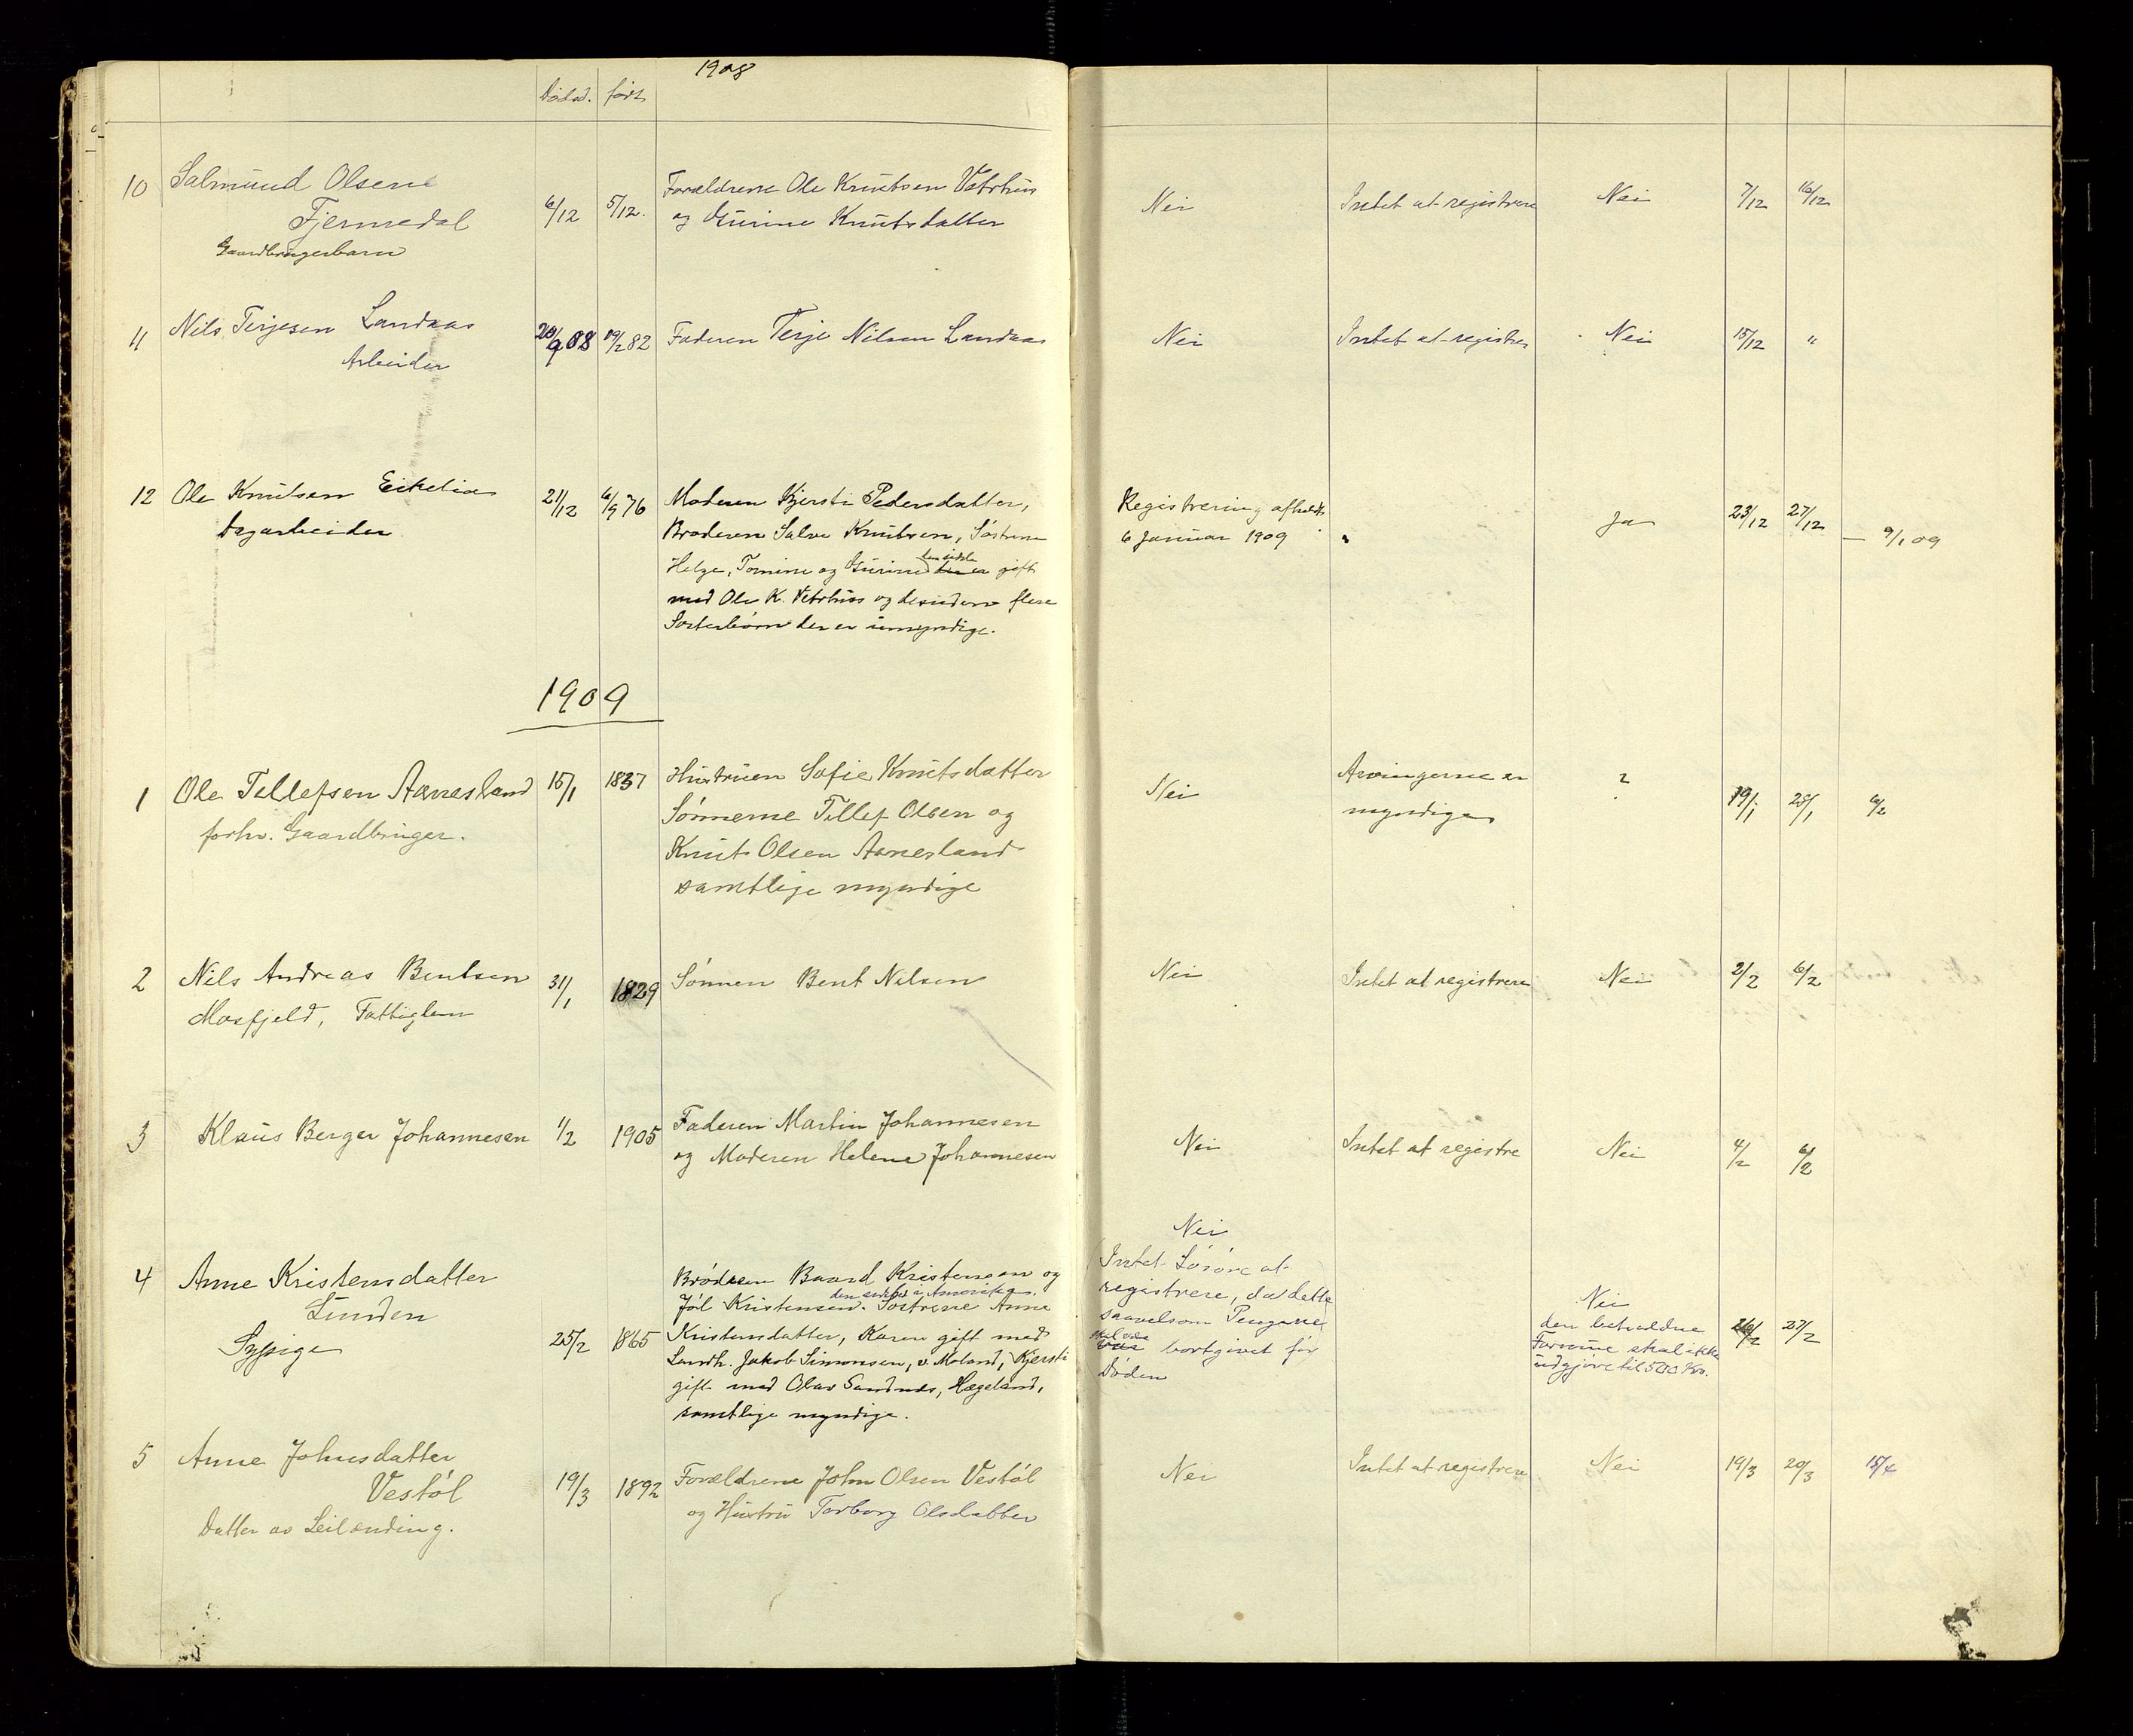 1908
Dödsd. född
10 Salmund Olsen 6/12 5/12. Forældrene Ole Knutsen Vatrhus Nei Intet at registrere Nei 7/12 16/12
Fjermedal og Gurine Knutsdatter
Gaardbrugerbarn
11 Nils Terjesen Landaas 20/9 08 19/2 82 Faderen Terje Nilsen Landaas Nei Intet at registrer Nei 15/12 "
Arbeider
12 Ole Knutsen Eikelia 21/12 6/9 76 Moderen Kjersti Pedersdatter, Registrering afholdt Ja 23/12 27/12 — 9/1 09
Dagarbeider Broderen Salve Knutsen, Söstrene 6 Januar 1909
Helge, Tomine og Gurine den sidste gift
med Ole K. Vetrhus og desuden flere
Søsterbörn der er umyndige.
1909
1 Ole Tellefsen Aanesland 15/1 1837 Hustruen Sofie Knutsdatter Nei Arvingerne er ? 19/1 25/1 6/2
forhv. Gaardbruger. Sønnerne Tellef Olsen og myndige
Knut Olsen Aanesland
samtlige myndige
2 Nils Andreas Bentsen 31/1 1829 Sønnen Bent Nilsen Nei Intet at registrere Nei 2/2 6/2
Mosfjeld, Fattiglem
3 Klaus Berger Johannesen 1/2 1905 Faderen Martin Johannesen Nei Intet at registre Nei 4/2 6/2
og Moderen Helene Johannesen
4 Anne Kristensdatter Brødrene Baard Kristensen og Nei
Lunden Jöl Kristensen. den sidste i Amerika. Söstrene Anne Intet Lösöre at
Sypige 25/2 1865 Kristensdatter, Karen gift med registrere, da dette Nei 26/2 27/2
Landh. Jakob Simonsen, v. Moland, Kjersti saavelsom Pengene den beholdne
gift med Olav Sandnes, Hægeland, skal være bortgivet för Formue skal ikke
samtlige myndige. Döden udgjöre til 500 Kr.
5 Anne Johnsdatter 19/3 1892 Forældrene John Olsen Vestöl Nei Intet at registrere Nei 19/3 20/3 15/4
Vestöl og Hustru Torborg Olsdatter
Datter av Leilænding.